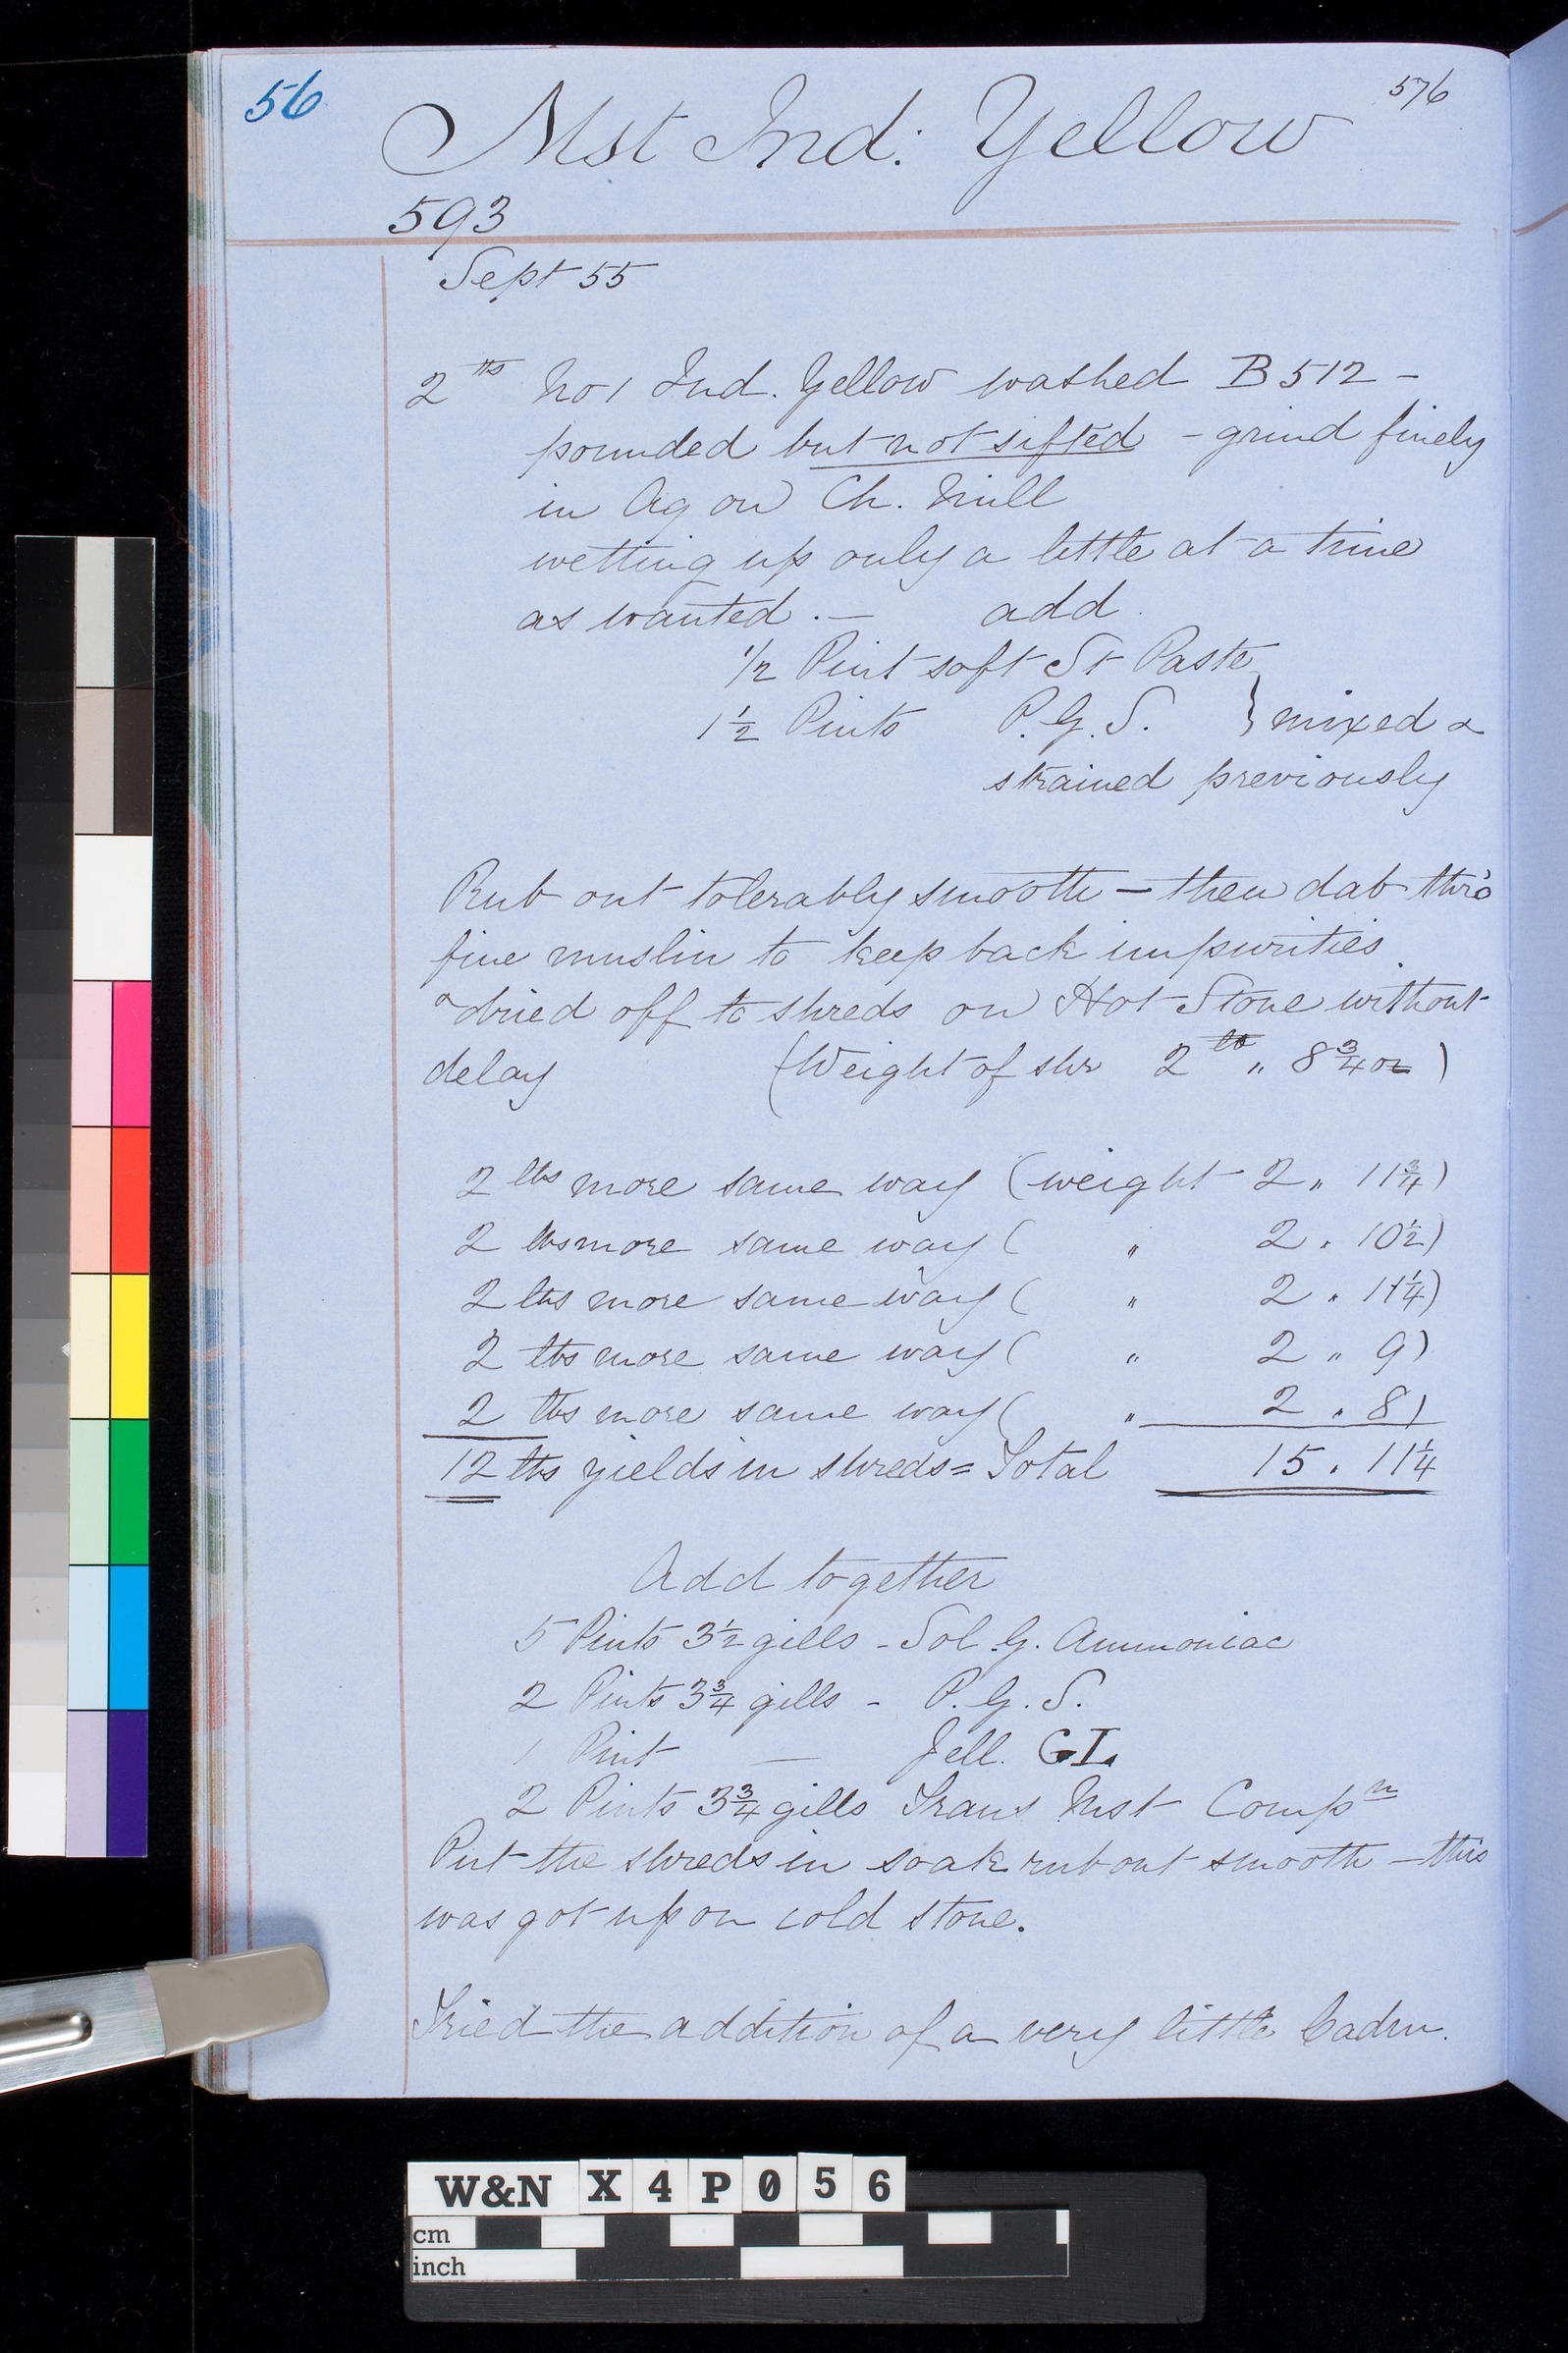 56
576
Mst Ind: Yellow
593
Sept 55
2 lbs No 1 Ind. Yellow washed B 512 -
pounded but not sifted - grind finely
in Aq on Ch. Mill
wetting up only a little at a time
as wanted. — add
1/2 Pint soft St Paste
1 1/2 Pints P. G. S. } mixed &
strained previously
Rub out tolerably smooth — then dab thro'
fine muslin to keep back impurities
& dried off to shreds on Hot Stone without
delay (Weight of shr 2 lb „ 8 3/4 oz)
2 lbs more same way (weight 2 „ 11 3/4)
2 lbs more same way ( „ 2 . 10 1/2)
2 lbs more same way ( „ 2 . 11 1/4)
2 lbs more same way ( „ 2 „ 9)
2 lbs more same way ( „ 2 . 8)
12 lbs yields in shreds = Total 15 . 11 1/4
Add together
5 Pints 3 1/2 gills - Sol G. Ammoniac
2 Pints 3 3/4 gills - P. G. S.
1 Pint — Jell. GL
2 Pints 3 3/4 gills Trans Mst Compn
Put the shreds in soak rub out smooth — this
was got up on cold stone.
Tried the addition of a very little Cadm.
W&N X4P056
cm
inch